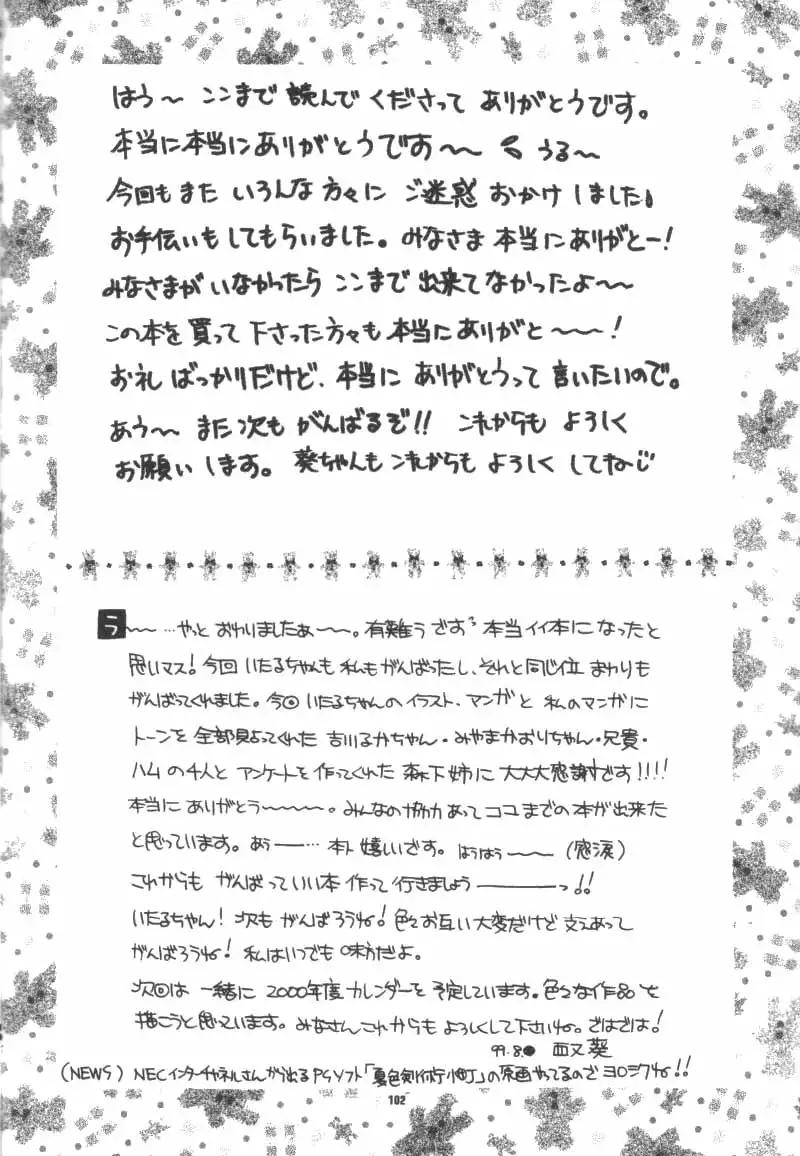 はう〜 ここまで 読んで くださって ありがとうです。
本当に本当にありがとうですぉ〜〜 うる〜
今回もまた いろんな方々に ご迷惑 おかけしました
お手伝いもしてもらいました。みなさま 本当にありがとー!
みなさまが いなかったら ここまで 出来てなかったよ〜〜
この本を買って下さった方々も本当にありがと〜〜!
お礼ばっかりだけど、本当に ありがとうって 言いたいので。
あう〜 また次も がんばるぞ!! これからも よろしく
お願いします。葵ちゃんも これからも よろしく してね
う〜〜…やっと おわりましたぁ〜〜。有難うござます 本当イイ本になったと
思いマス!今回 いたるちゃんも 私もがんばったし、それと同じ位 まわりも
がんばってくれました。今回 いたるちゃんの イラスト、マンガと 私のマンガに
トーンを 全部貼ってくれた 吉川るかちゃん・みやまかおりちゃん・兄貴・
ハムの4人と アンケートを作ってくれた 森下姉に 大大大感謝です!!!!
本当に ありがとう〜〜〜。みんなの協力あって ココまでの本が出来た
と思っています。あぅ――… 本ト 嬉しいです。はうはう〜〜(感涙)
これからも がんばって いい本 作って 行きましょう―――っ!!
いたるちゃん! 次も がんばろうね!色々お互い大変だけど 支えあって
がんばろうね! 私はいつでも 味方だよ。
次回は 一緒に 2000年度 カレンダーを 予定しています。色々な作品を
描こうと思っています。みなさんこれからも よろしくして下さいね。ではでは!
99.8 葵
(NEWS) NECインターチャネルさんから出る PSソフト「夏色剣術小町」の原画やってるので ヨロシクね!!
102